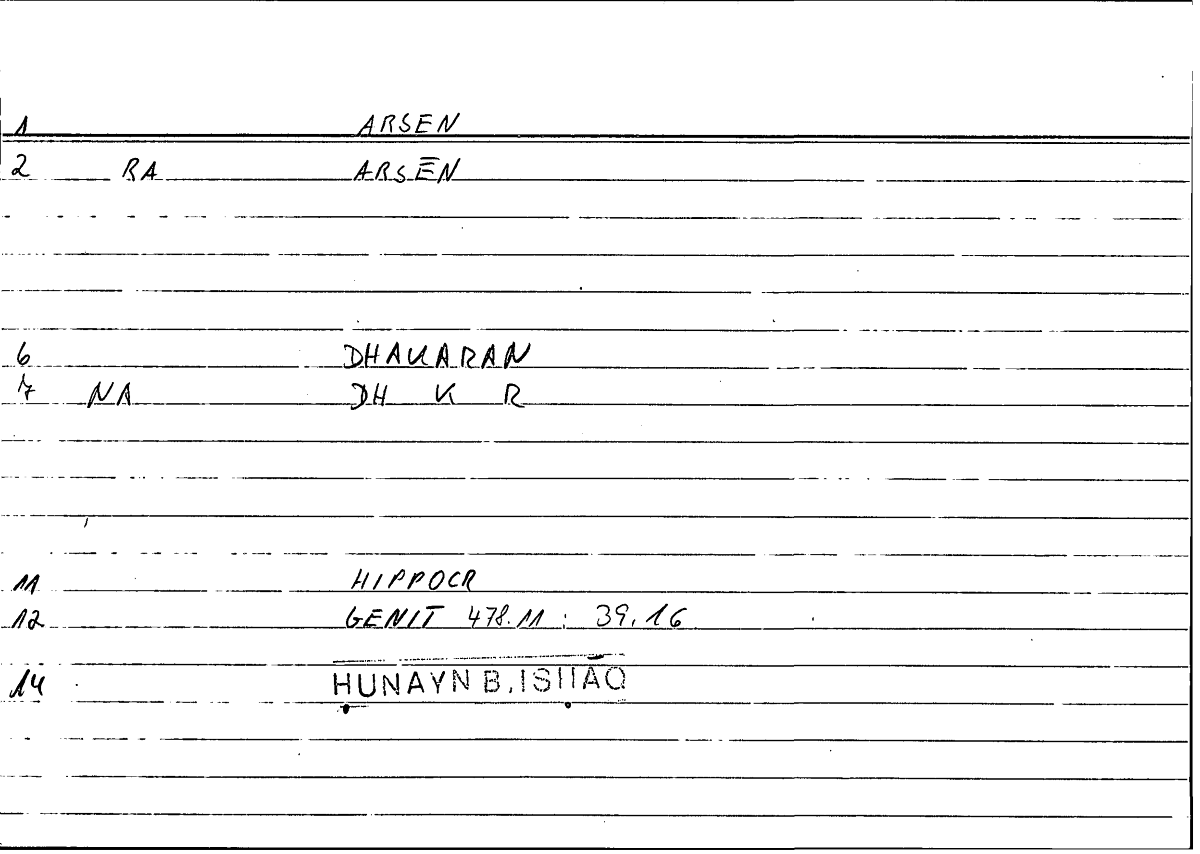 1 ARSEN
2 RA ARSĒN
6 DHAKARAN
7 NA DH K R
11 HIPPOCR
12 GENIT 478.11 : 39,16
14 ḤUNAYN B. ISḤĀQ